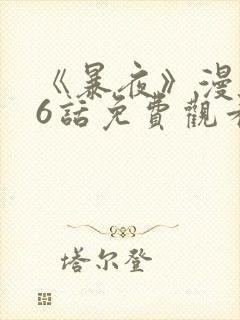 《暴夜》漫
6話免費觀看
塔尔登